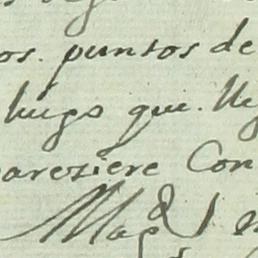 os. puntos de
luego que. lle
pareziere Con
Mag^d